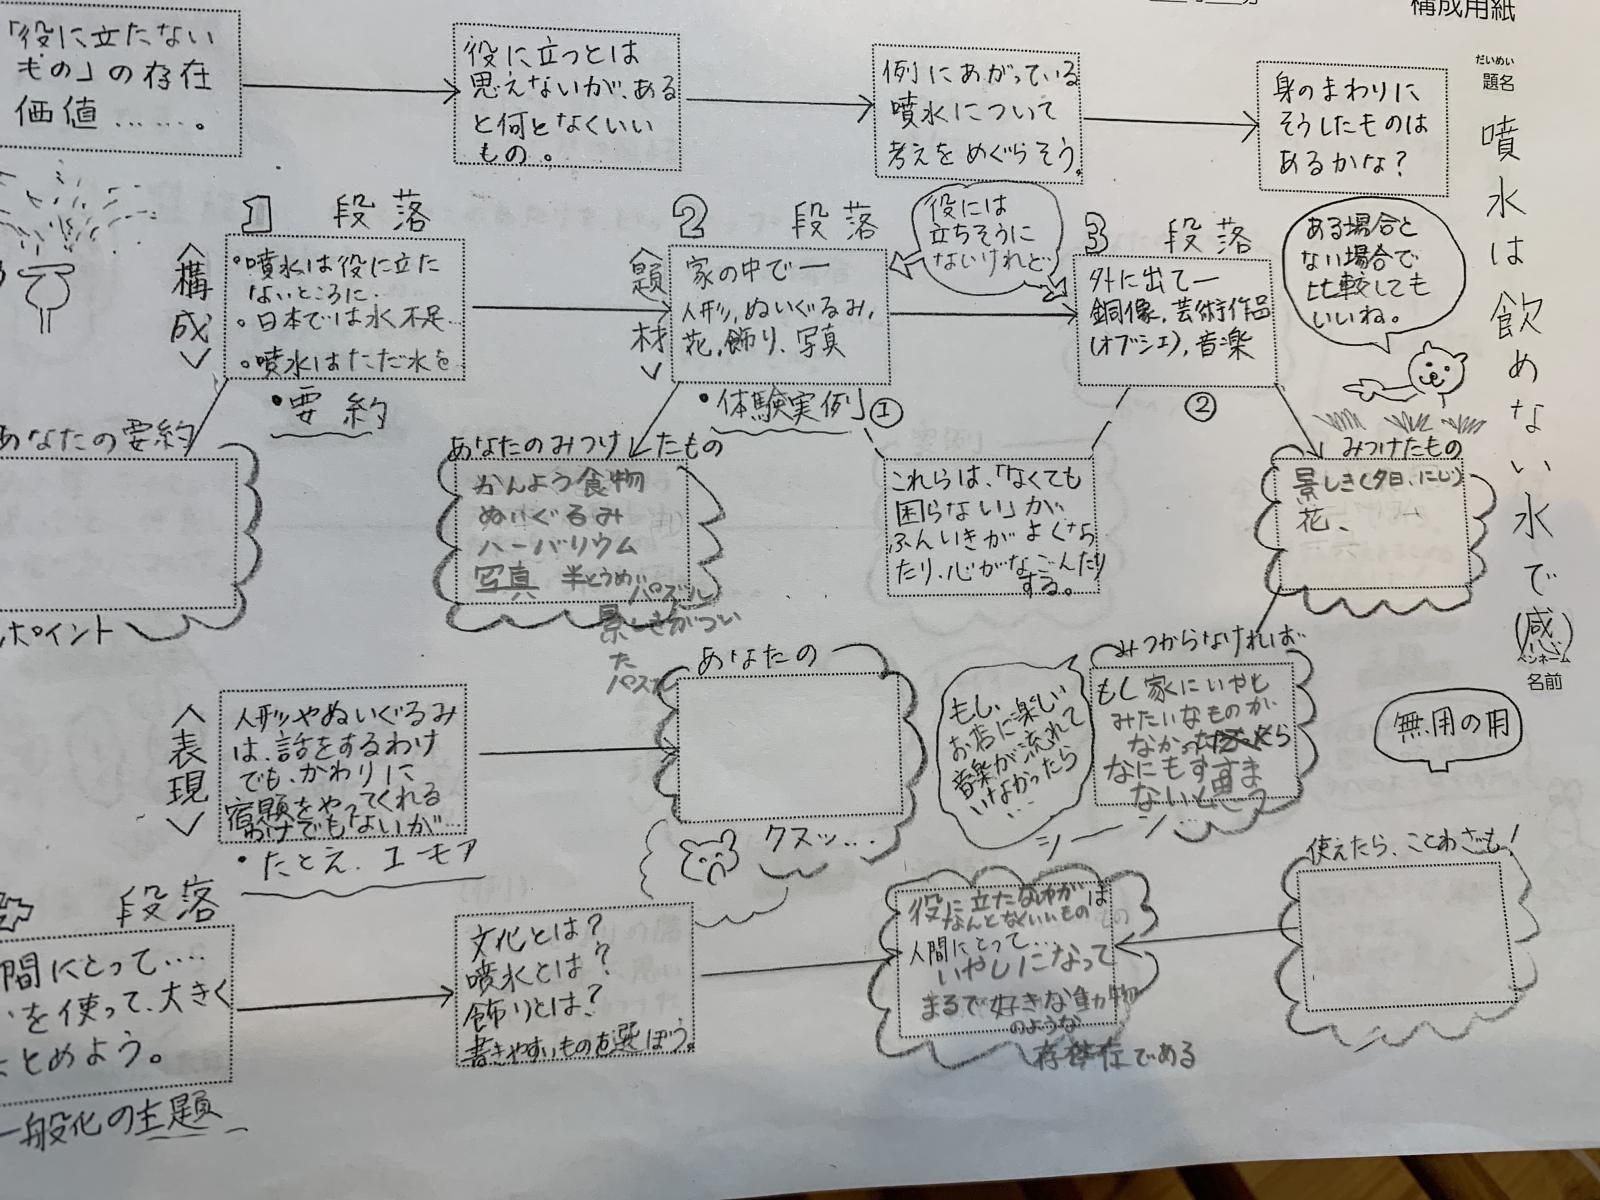 構成用紙
だいめい
題名
噴水は飲めない水で
(感)
ペンネーム
名前
「役に立たない
もの」の存在
価値……。
役に立つとは
思えないが、ある
と何となくいい
もの。
例にあがっている
噴水について
考えをめぐらそう。
身のまわりに
そうしたものは
あるかな?
1 段落
〈構成〉
・噴水は役に立た
ないところに…
。日本では水不足…
。噴水はただ水を…
・要約
2 段落
〈題材〉
家の中で―
人形,ぬいぐるみ,
花,飾り、写真
・体験実例」①
役には
立ちそうに
ないけれど
3 段落
外に出て―
銅像,芸術作品
(オブジェ),音楽
②
ある場合と
ない場合で
比較しても
いいね。
あなたの要約
ポイント
あなたのみつけたもの
かんよう食物
ぬいぐるみ
ハーバリウム
写真 半とうめい
パズル
景しきがつい
た
パズル
これらは、「なくても
困らない」が、
ふんいきがよくなっ
たり、心がなごんだり
する。
みつけたもの
景しき(夕日、にじ)
花、
〈表現〉
人形やぬいぐるみ
は、話をするわけ
でも、かわりに
宿題をやってくれる
わけでもないが…
・たとえ、ユーモア
あなたの
クスッ…
もし、
お店に楽しい
音楽が流れて
いなかったら
…
みつからなければ
もし家にいやし
みたいなものが、
なかったら
なにもすすま
ないと思う
シーーン…
無用の用
段落
間にとって….
を使って、大きく
とめよう。
一般化の主題
文化とは?
噴水とは?
飾りとは?
書きやすいものを選ぼう。
役に立たないが
なんとなくいいものは
人間にとって…
いやしになって
まるで好きな動物
のような
存在である
使えたら、ことわざも!